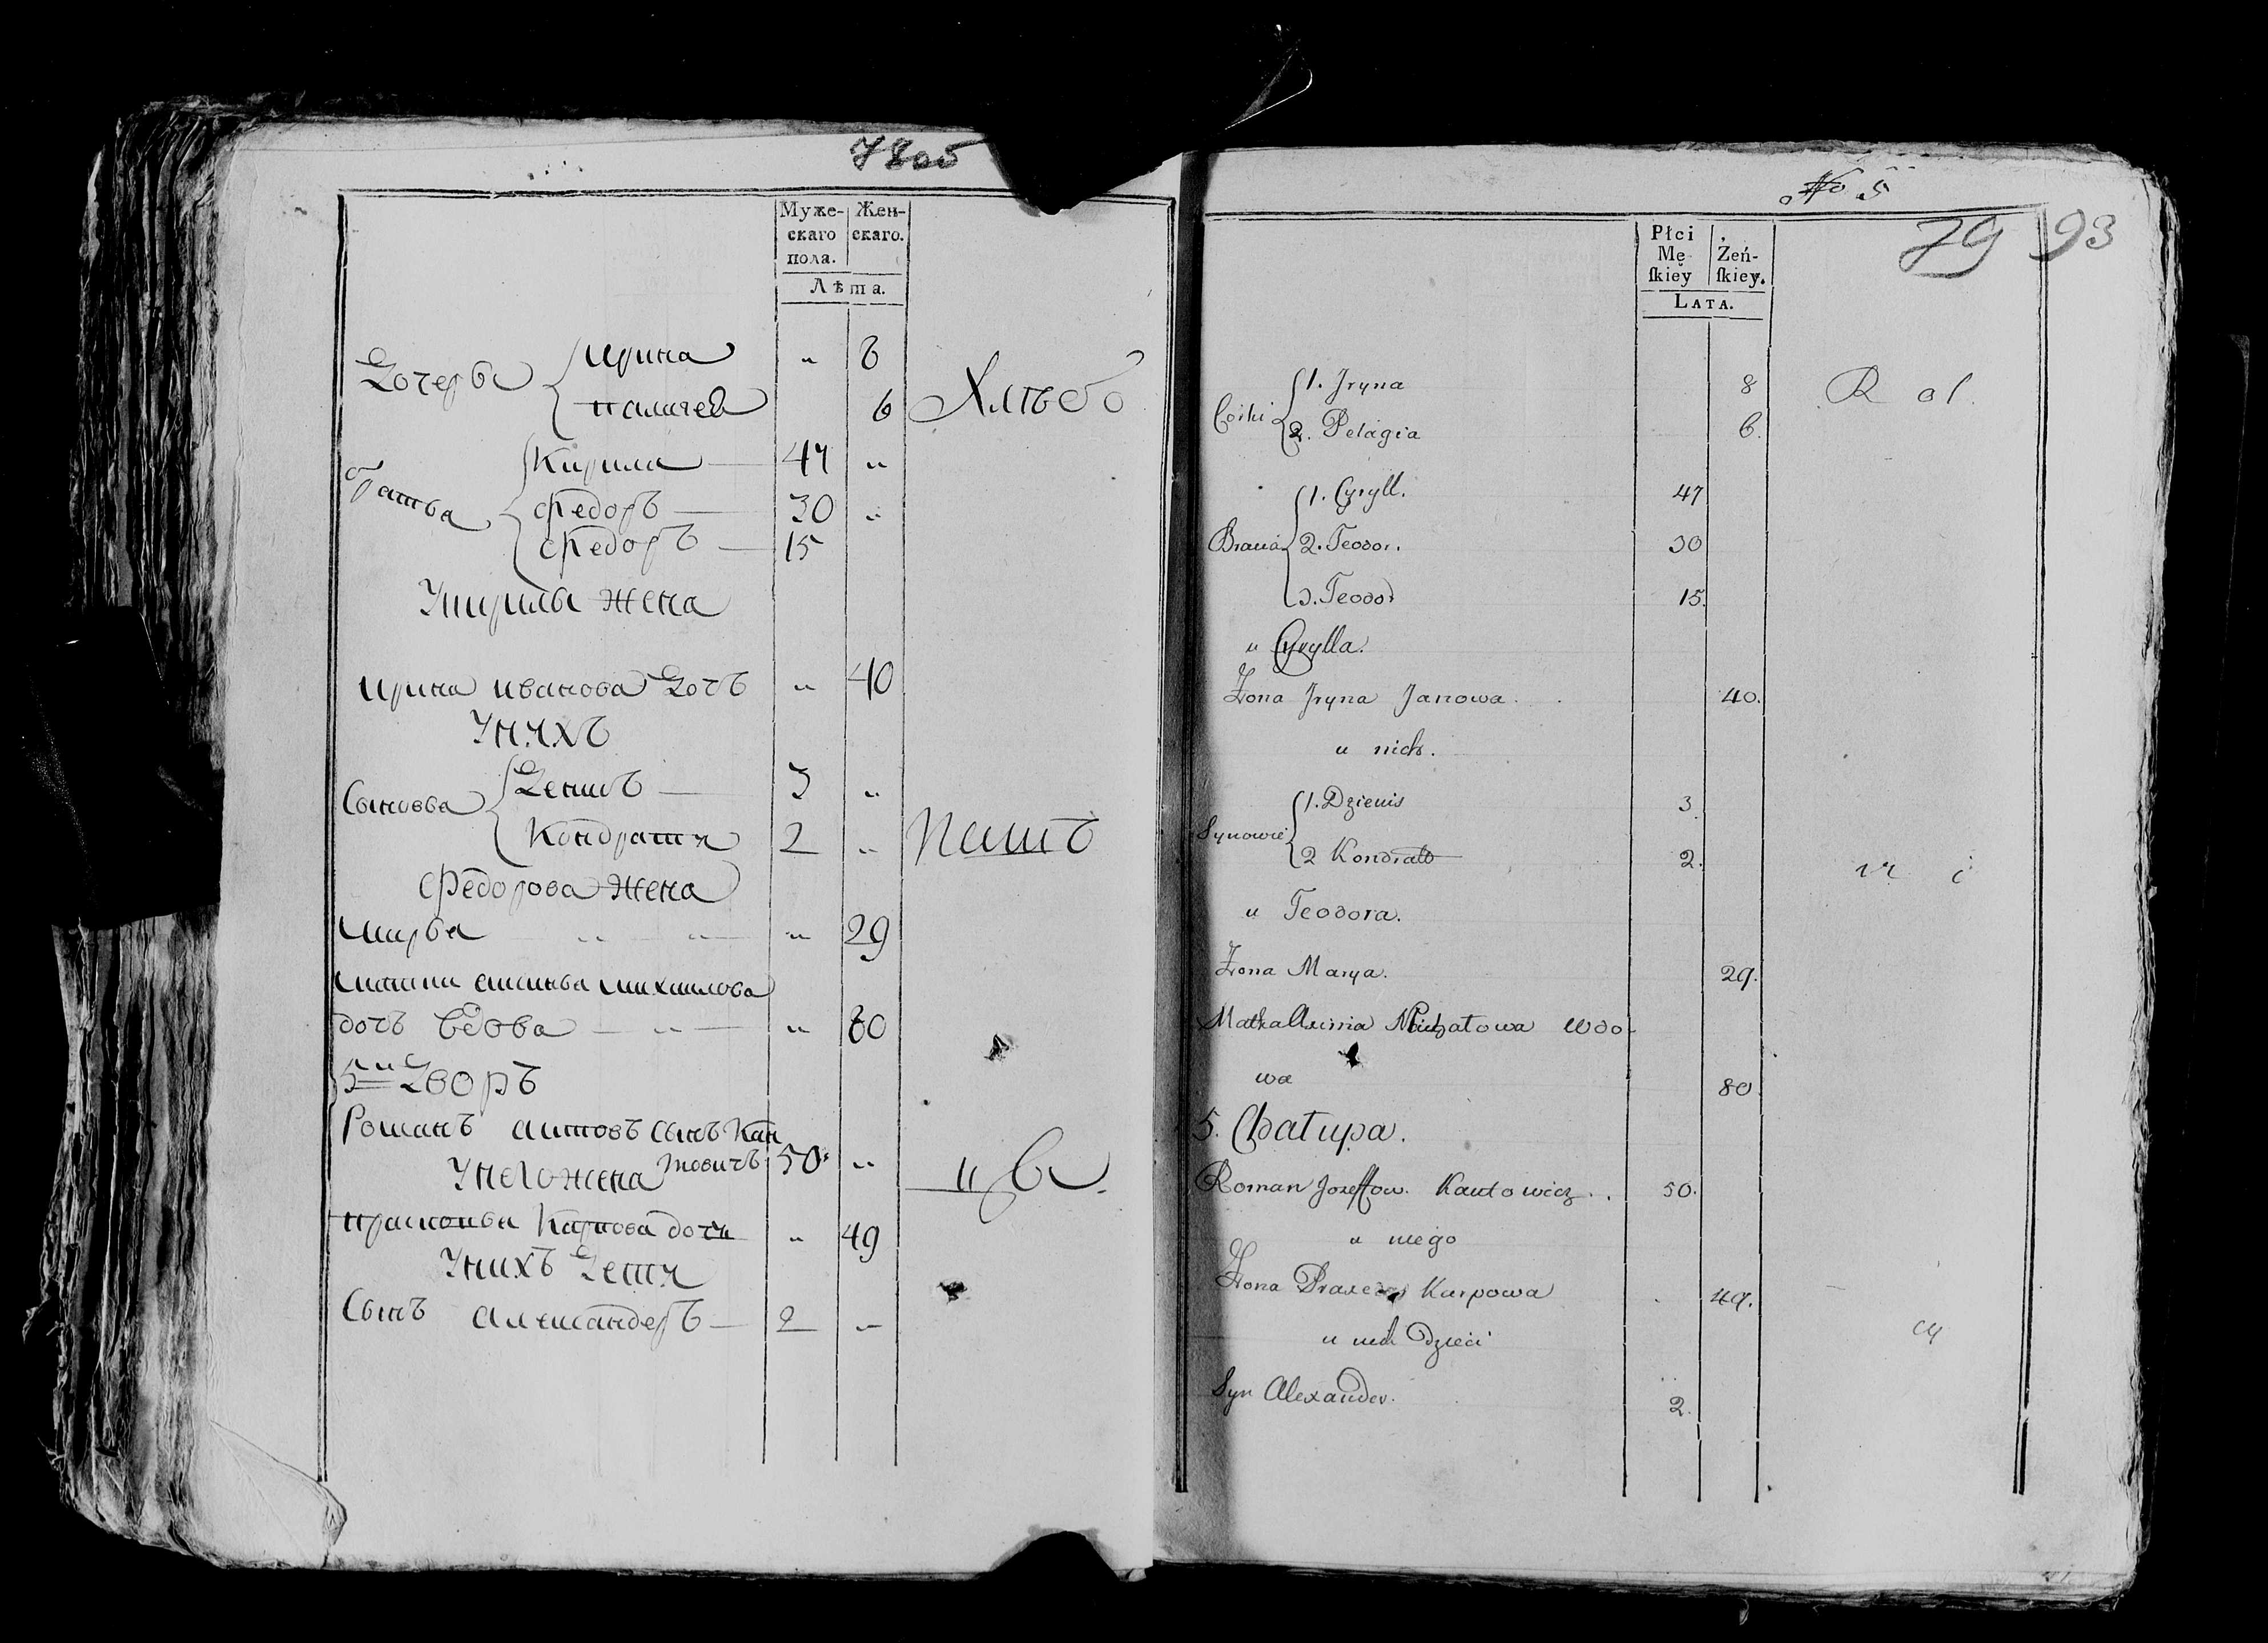 78об
Муже-
скаго
пола.
Жен-
скаго.
Лѣта.
Дочерьи
Ирина „ 8
Палагея 6
Хлѣбо
братья
Кирила 47 „
Федоръ 30 „
Федоръ 15
Укирилы жена
Ирина Иванова Дочь „ 40
Унихъ
Сыновья
Денисъ 3 „
Кондрати 2 „
Пашъ
Федорова жена
Марья „ „ „ 29
Мати Аксинья Михайлова
дочь вдова „ „ 80
5й Дворъ
Романъ Аситовъ сынъ Кан
товичъ 50 „
Унего жена
цы.
Прасковья Карпова дочь „ 49
Унихъ Дети
Сынъ Александеръ 2 „
No 5
79 93
Płci
Mę-
skiey
Żeń-
skiey.
Lata.
Córki
1. Jryna 8
2. Pelagia 6.
R ol.
Bracia
1. Cyryll. 47
2. Teodor. 30
3. Teodor 15.
u Cyrylla.
Żona Jryna Janowa. 40.
u nich.
Synowie
1. Dzienis 3
2 Kondrat 2.
ni i
u Teodora.
Żona Marya. 29.
Matka Axinia Michałowa Wdo-
wa 80
5. Chałupa.
Roman Jozeffow. Kantowicz. 50.
u niego
Żona Praxeda Karpowa 49.
u nich Dzieci
cy
Syn Alexander. 2.